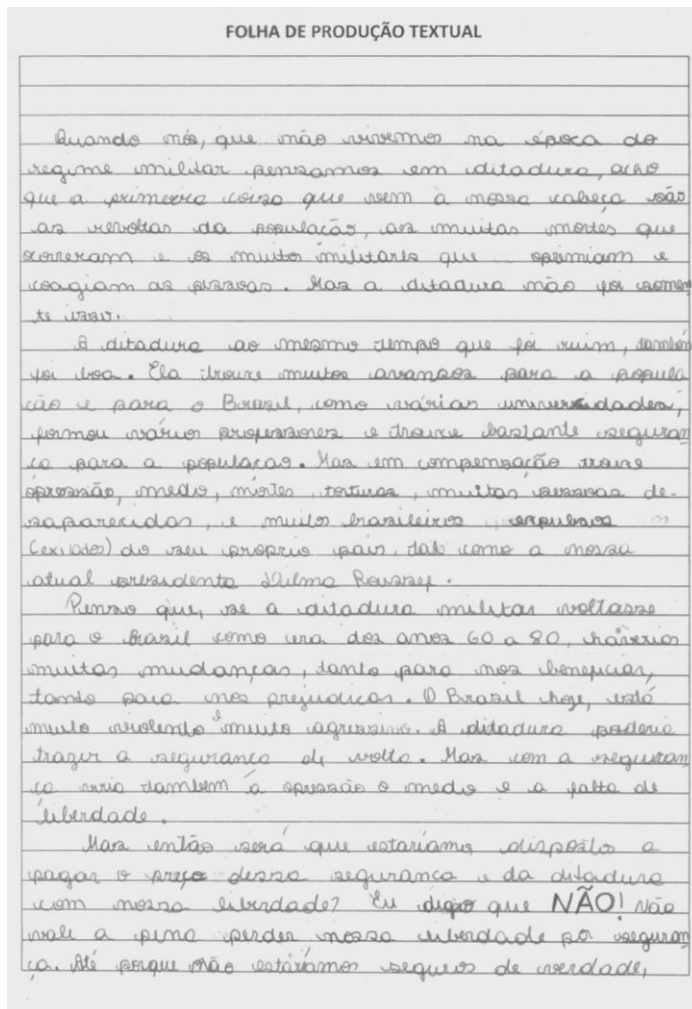 FOLHA DE PRODUÇÃO TEXTUAL
Quando nós, que não vivemos na época do
regime militar pensamos em ditadura, acho
que a primeira coisa que vem à nossa cabeça são
as revoltas da população, as muitas mortes que
ocorreram e os muito militares que oprimiam e
coagiam as pessoas. Mas a ditadura não foi somen
te isso.
A ditadura ao mesmo tempo que foi ruim, também
foi boa. Ela trouxe muitos avanços para a popula
ção e para o Brasil, como várias universidades,
formou vários professores e trouxe bastante seguran
ça para a população. Mas em compensação trouxe
opressão, medo, mortes, torturas, muitas pessoas de-
saparecidas, e muitos brasileiros expulsos
(exilados) do seu próprio país, tal como a nossa
atual presidenta Dilma Roussef.
Penso que, se a ditadura militar voltasse
para o Brasil como era dos anos 60 a 80, haveria
muitas mudanças, tanto para nos beneficiar,
tanto para nos prejudicar. O Brasil hoje, está
muito violento e muito agressivo. A ditadura poderia
trazer a segurança de volta. Mas com a seguran
ça viria também a opressão o medo e a falta de
liberdade.
Mas então será que estaríamos dispostos a
pagar o preço dessa segurança e da ditadura
com nossa liberdade? Eu digo que NÃO! Não
vale a pena perder nossa liberdade por seguran
ça. Até porque não estaríamos seguros de verdade,